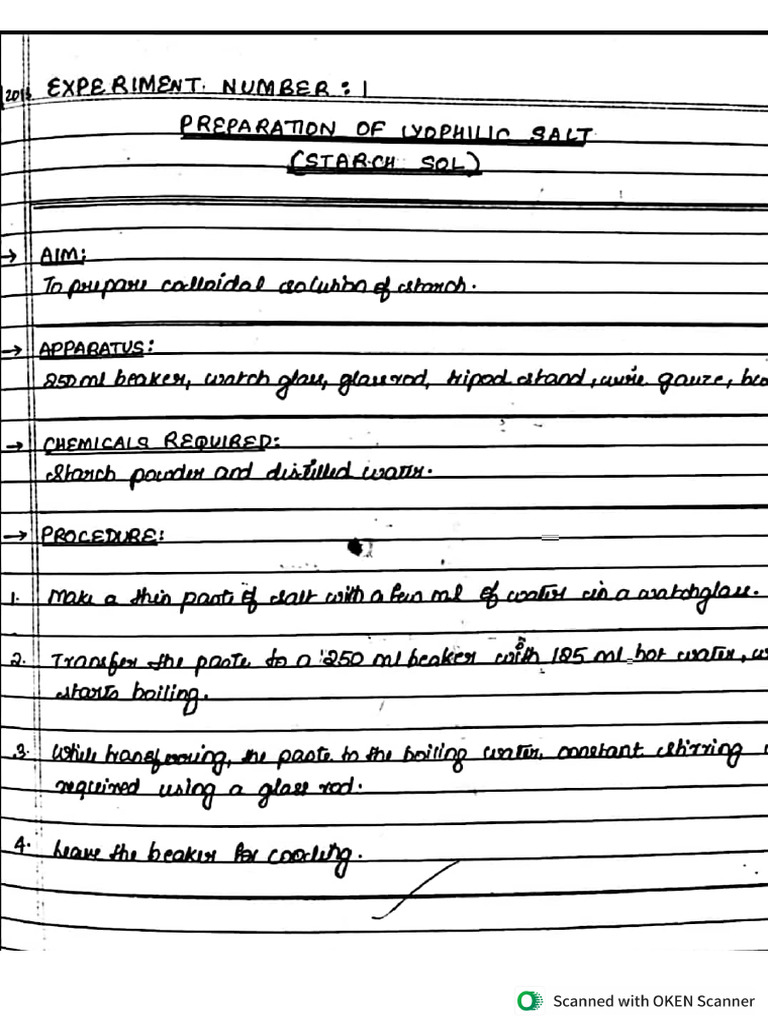 EXPERIMENT NUMBER: 1
PREPARATION OF LYOPHILIC SALT
(STARCH SOL)
→ AIM:
To prepare colloidal solution of starch.
→ APPARATUS:
250 ml beaker, watch glass, glass rod, tripod stand, wire gauze,
→ CHEMICALS REQUIRED:
Starch powder and distilled water.
→ PROCEDURE:
1. Make a thin paste of salt with a few ml of water in a watchglass.
2. Transfer the paste to a 250 ml beaker with 125 ml hot water,
starts boiling.
3. While transferring, the paste to the boiling water, constant stirring
required using a glass rod.
4. Leave the beaker for cooling.
Scanned with OKEN Scanner